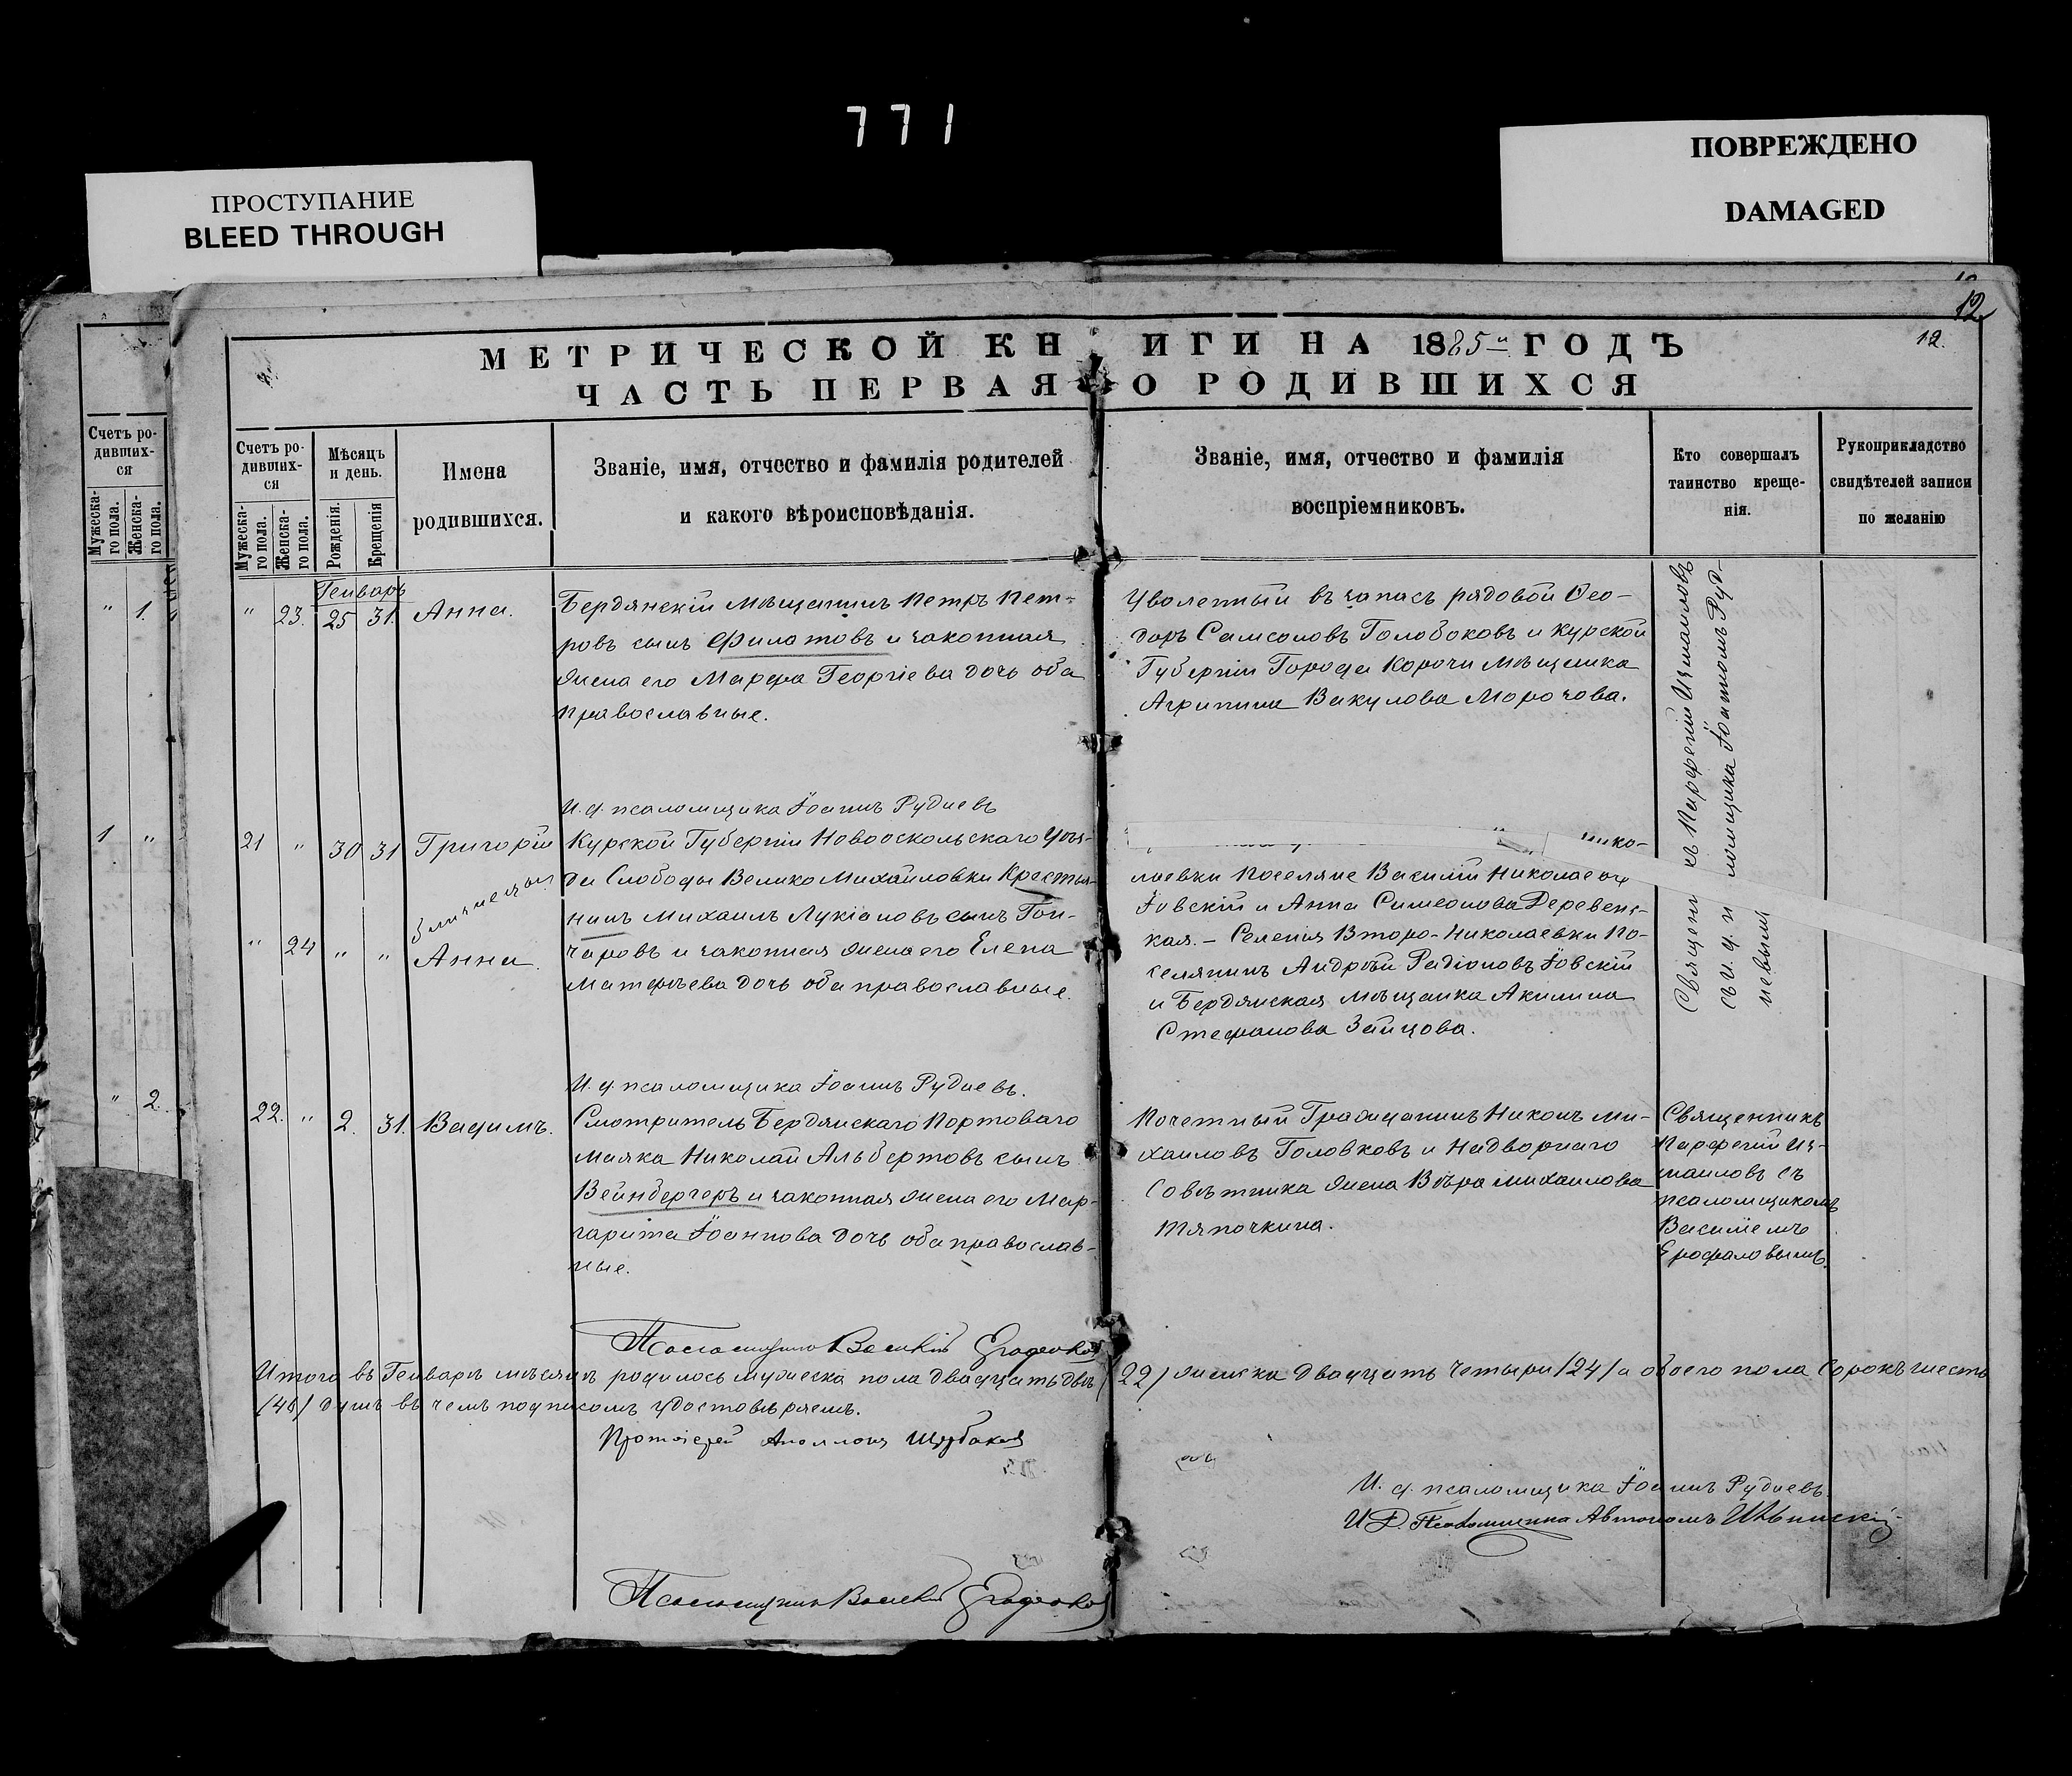 771
ПРОСТУПАНИЕ
BLEED THROUGH
ПОВРЕЖДЕНО
DAMAGED
12
12.
МЕТРИЧЕСКОЙ КНИГИ НА 1885й ГОДЪ
ЧАСТЬ ПЕРВАЯ О РОДИВШИХСЯ
Счетъ ро-
дивших-
ся
Мужеска-
го пола.
Женска-
го пола.
" 1.
1 "
" 2.
Счетъ ро-
дивших-
ся
Мужеска-
го пола.
Женска-
го пола.
Мѣсяцъ
и день.
Рожденія.
Крещенія
Имена
родившихся.
Званіе, имя, отчество и фамилія родителей
и какого вѣроисповѣданія.
Званіе, имя, отчество и фамилія
воспріемниковъ.
Кто совершалъ
таинство креще-
нія.
Рукоприкладство
свидѣтелей записи
по желанію
Генварь
" 23. 25 31. Анна.
Бердянскій Мѣщанинъ Петръ Пет-
ровъ сынъ Филатовъ и законная
жена его Марфа Георгіева дочь оба
православные.
Уволенный въ запасъ рядовой Ѳео-
доръ Самсоновъ Голобоковъ и Курской
Губерніи Города Корочи Мѣщанка
Агрипина Вакулова Морозова.
И. д. псаломщика Іоаннъ Рудневъ
21 " 30 31 Григорій
Близнецы
" 24 " " Анна.
Курской Губерніи Новооскольскаго Уѣз-
да Слободы Велико Михайловки Крестья-
нинъ Михаилъ Лукіановъ сынъ Гон-
чаровъ и законная жена его Елена
Матфѣева дочь оба православные.
нико-
лаевки Поселяне Василій Николаевъ
Іовскій и Анна Симеонова Деревенс-
кая. – Селенія Второ-Николаевки По-
селянинъ Андрѣй Радіоновъ Іовскій
и Бердянская Мѣщанка Акилина
Стефанова Зайцова.
Священникъ Парфеній Измаиловъ
съ И. д. псаломщика Іоанномъ Руд-
невымъ
И. д. псаломщика Іоаннъ Рудневъ.
22. " 2. 31. Вадимъ.
Смотритель Бердянскаго Портоваго
Маяка Николай Альбертовъ сынъ
Вейнбергеръ и законная жена его Мар-
гарита Іоаннова дочь оба православ-
ные.
Почетный Гражданинъ Никонъ Ми-
хаиловъ Головковъ и Надворнаго
Совѣтника жена Вѣра Михаилова
Тяпочкина.
Священникъ
Парфеній Из-
маиловъ съ
псаломщикомъ
Василіемъ
Ерофаловымъ.
Псаломщикъ Василій
Итого въ Генварѣ мѣсяцѣ родилось мужеска пола двадцать два (22) женска двадцать четыри (24) а обоего пола сорокъ шесть
(46) душъ въ чемъ подписомъ удостовѣряемъ.
Протоіерей Аполлонъ Щербаковъ
И. д. псаломщика Іоаннъ Рудневъ.
И Д. Псаломщика Автономъ
Псаломщикъ Василій